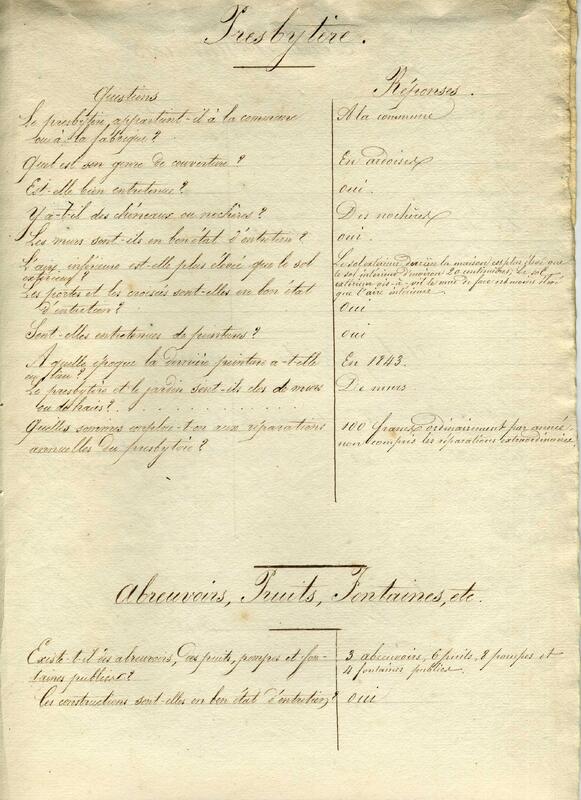 Presbytère.
Questions
Réponses.
Le presbytère appartient-il à la commune
ou à la fabrique?
A la commune
Quel est son genre de couverture?
En ardoises
Est-elle bien entretenue?
oui.
Y a-t-il des chéneaux ou nochères?
Des nochères
Les murs sont-ils en bon état d'entretien?
oui.
L'aire inférieure est-elle plus élevée que le sol
extérieur?
Le sol extérieur derrière la maison est plus élevé que
le sol intérieur d'environ 20 centimètres, le sol
extérieur vis-à-vis le mur de face est moins élevé
que l'aire intérieure
Les portes et les croisées sont-elles en bon état
d'entretien?
oui
Sont-elles entretenues de peintures?
oui
A quelle époque la dernière peinture a-t-elle
eu lieu?
En 1843.
Le presbytère et le jardin sont-ils clos de murs
ou de haies?
De murs
Quelles sommes emploie-t-on aux réparations
annuelles du presbytère?
100 francs ordinairement par année,
non compris les réparations extraordinaires
Abreuvoirs, Puits, Fontaines, etc.
Existe-t-il des abreuvoirs, des puits, pompes et fon-
taines publics?
3 abreuvoirs, 6 puits, 2 pompes et
4 fontaines publics
Ces constructions sont-elles en bon état d'entretien?
oui